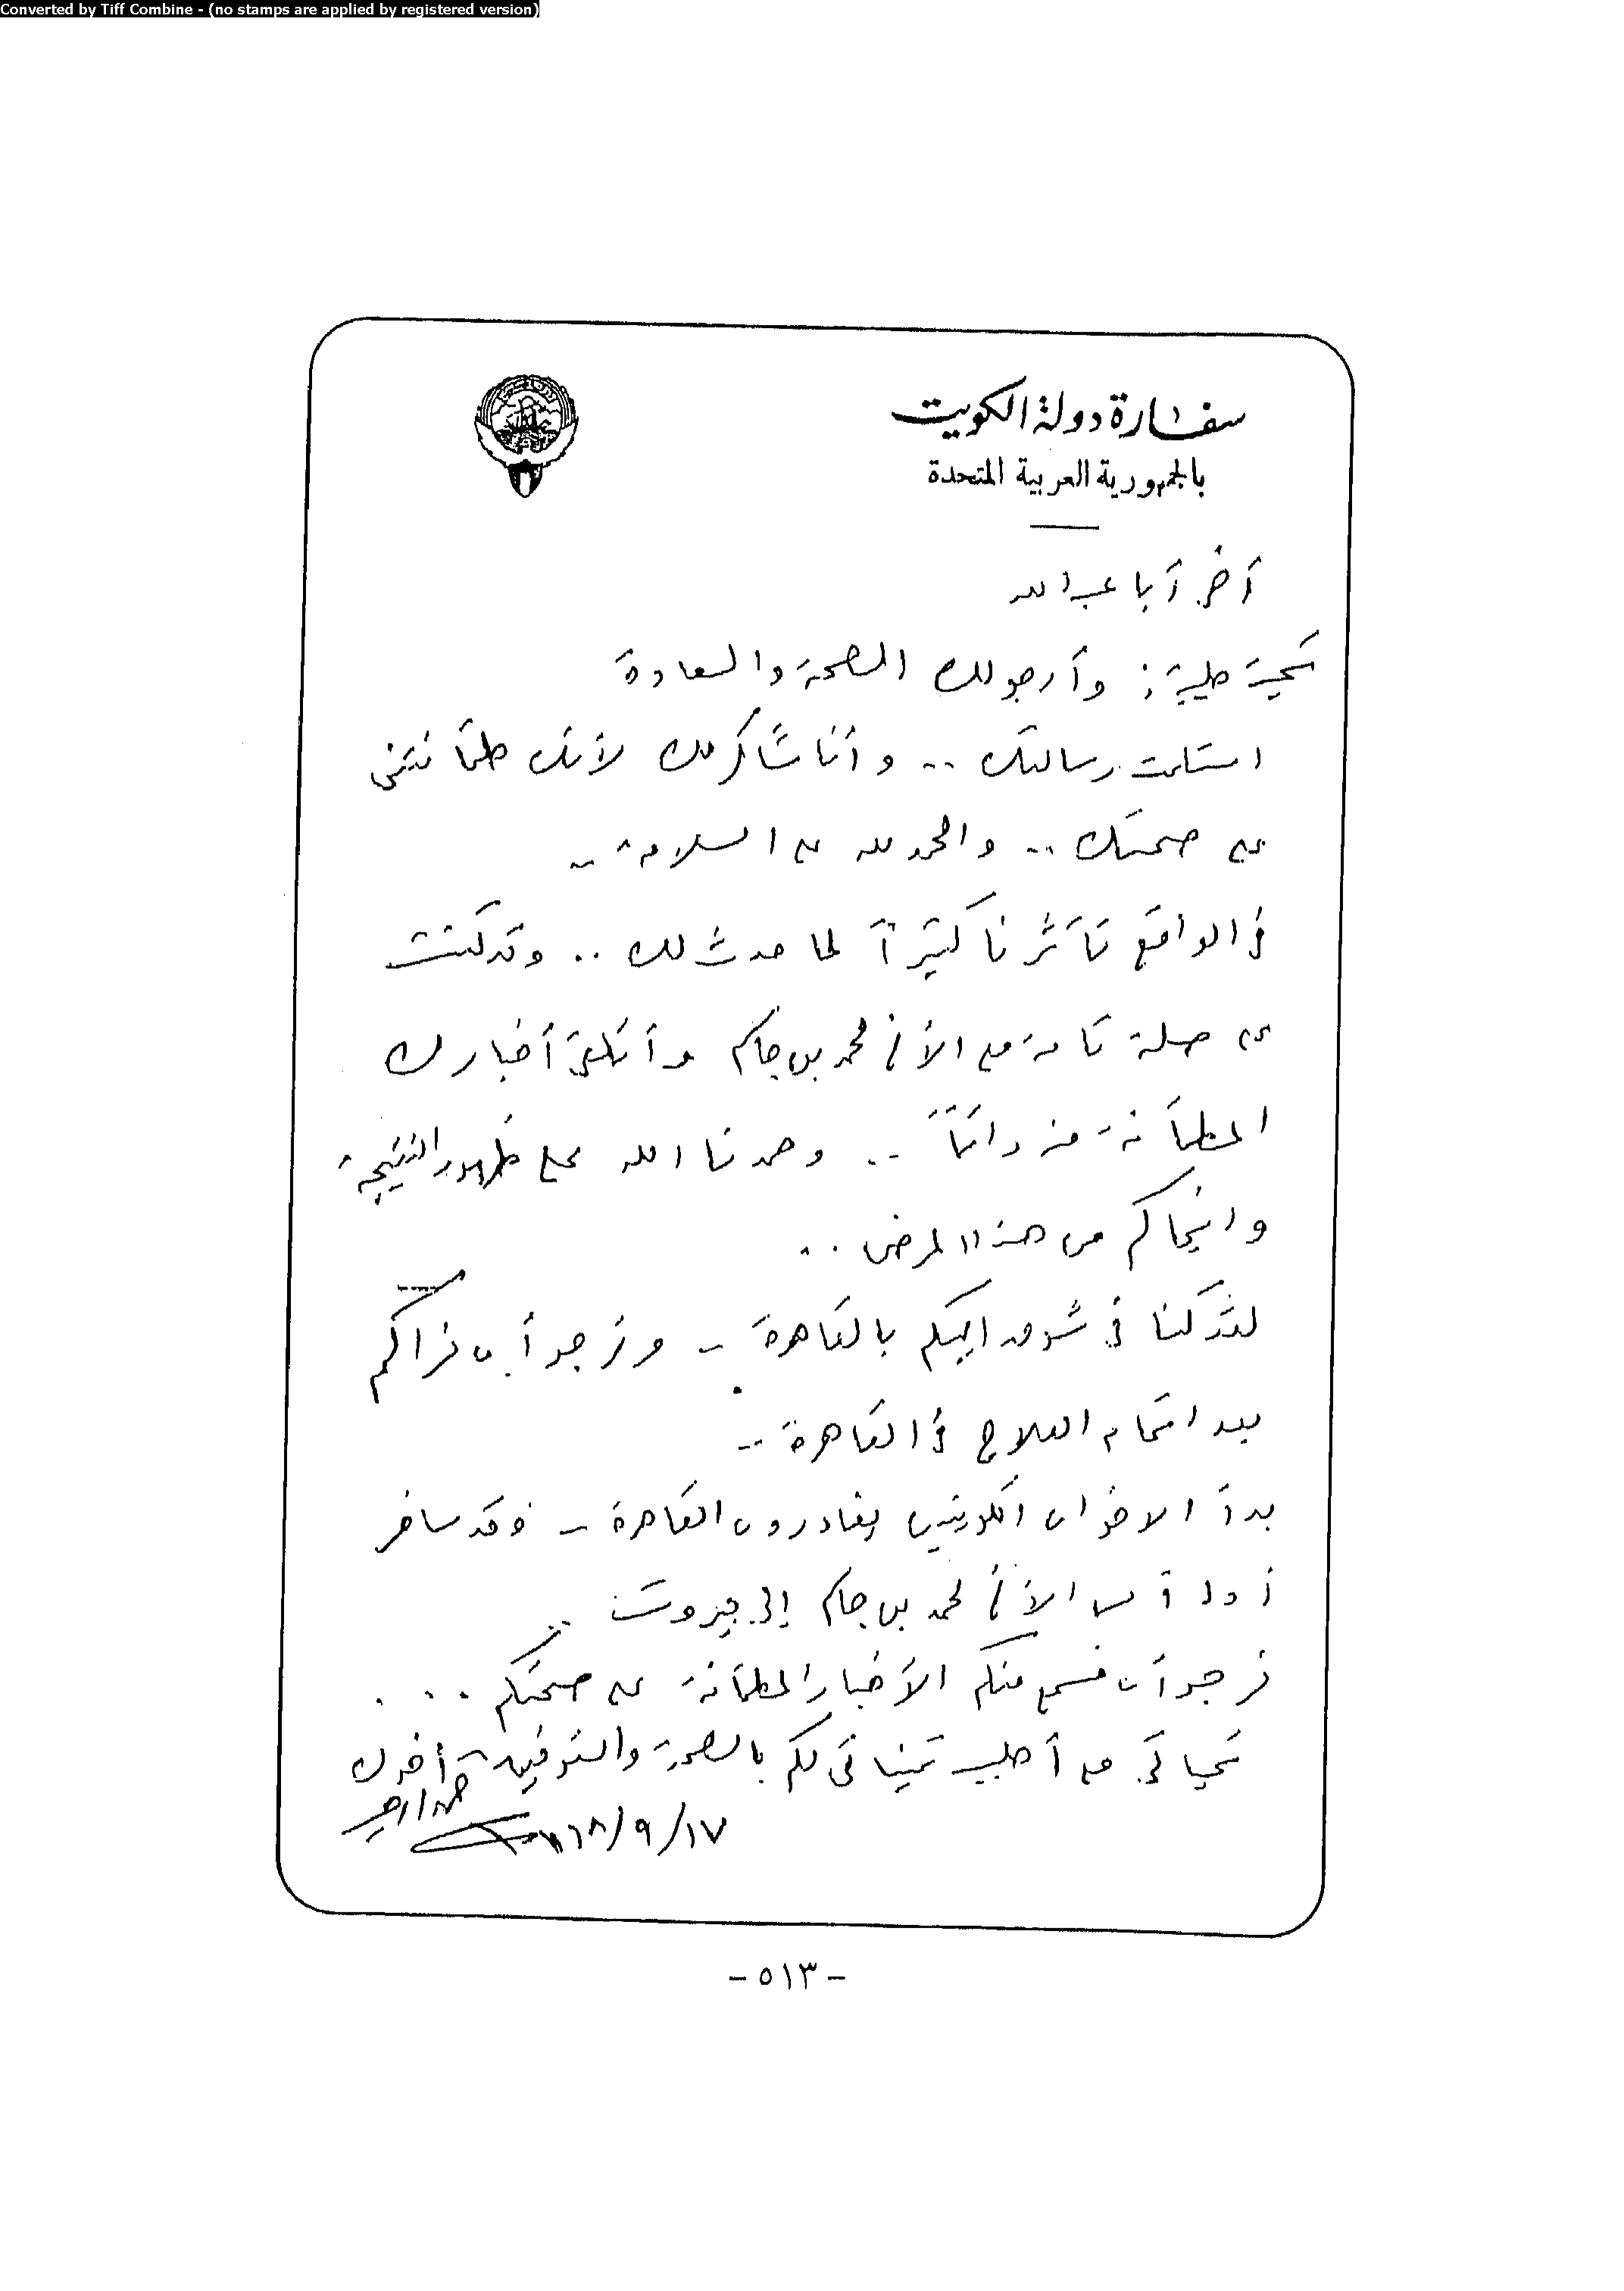 Converted by Tiff Combine - (no stamps are applied by registered version)
سفارة دولة الكويت
بالجمهورية العربية المتحدة
أخي أبا عبدالله
تحية طيبة: وأرجو لك الصحة والسعادة
استلمت رسالتك .. وأنا شاكر لك لأنك طمأنتني
على صحتك .. والحمد لله على السلامة ..
في الواقع تأثرنا كثيراً لما حدث لك .. وقد كنت
على صلة تامة مع الأخ محمد بن جاكم وأتلقى أخبارك
المطمأنة منه دائماً .. وحمدنا الله على ظهور النتيجة
وانجاكم من هذا المرض ..
لقد كنا في شوق اليكم بالقاهرة .. ونرجو أن نراكم
بعد اتمام العلاج في القاهرة ..
بدأ الاخوان الكويتيين يغادرون القاهرة .. فقد سافر
أول أمس الأخ محمد بن جاكم إلى بيروت ..
نرجو أن نسمع منكم الأخبار المطمأنة على صحتكم ...
تحياتي مع أطيب تمنياتي لكم بالصحة والتوفيق .. أخوك
حمد الرجيب
٦٨/٩/١٧
- ٥١٣ -